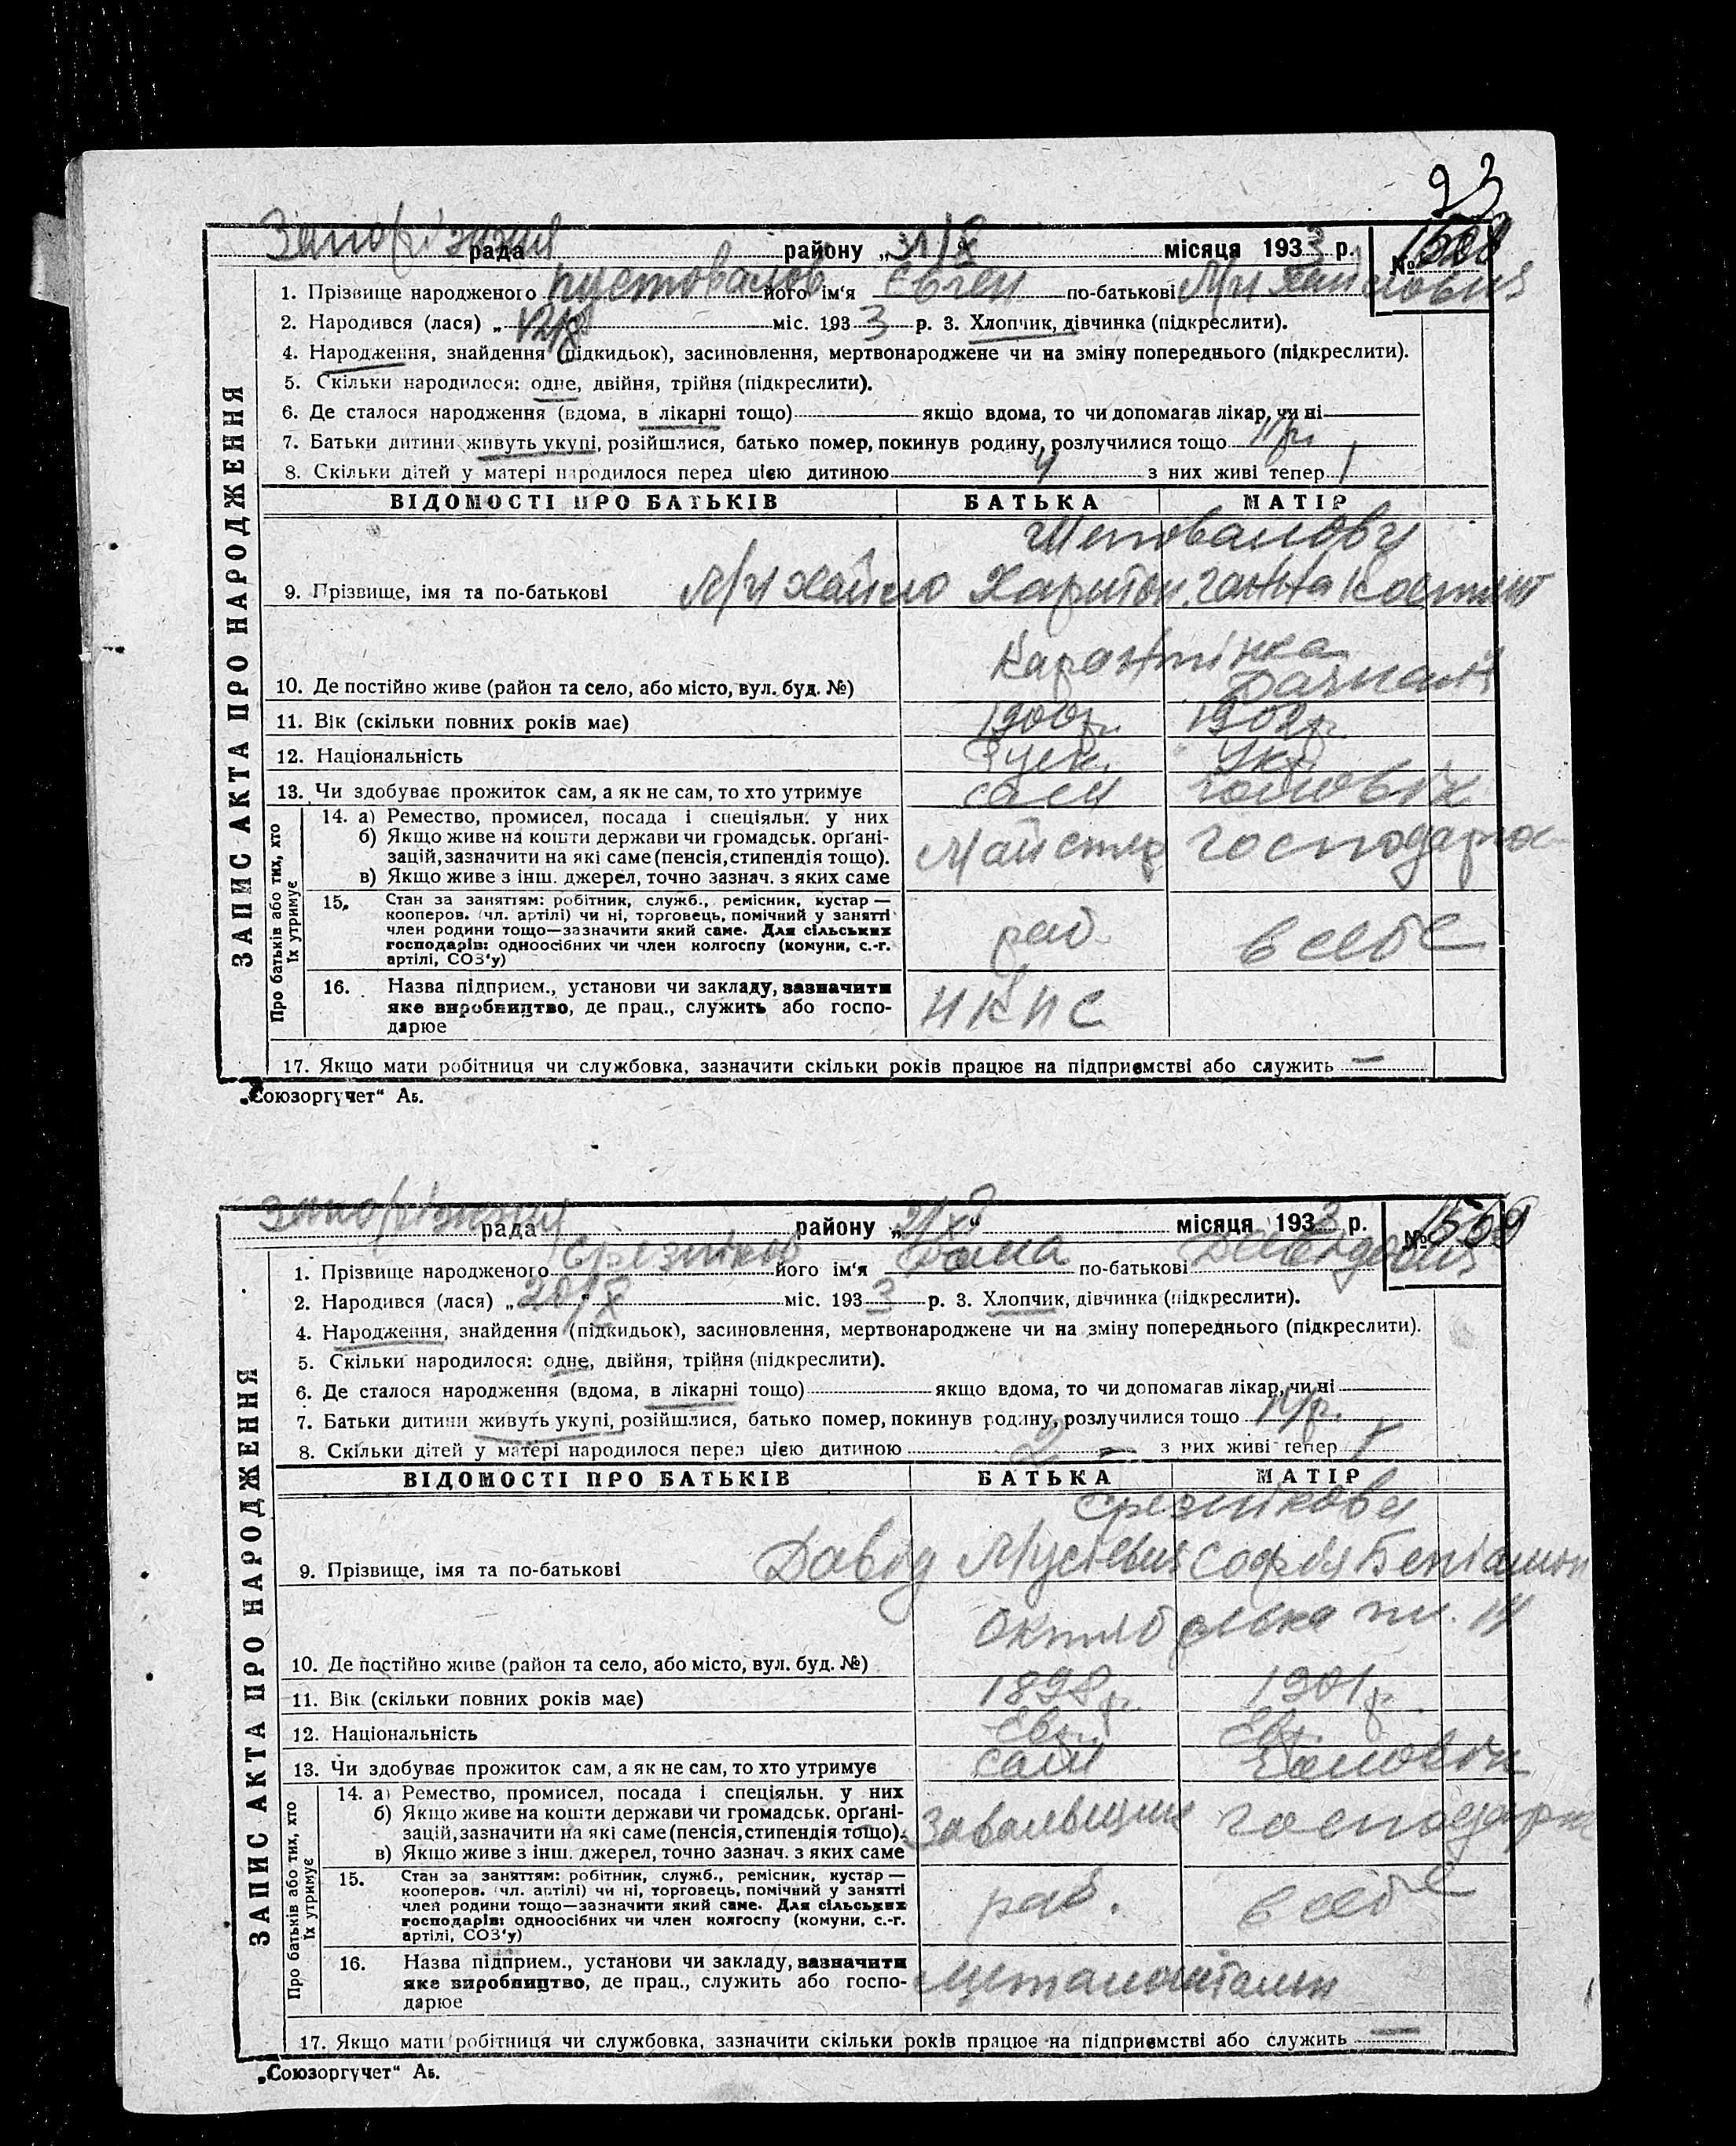 23
Запоріжжя рада району „31/X“ місяця 1933 р. № 1568
1. Прізвище народженого Пустовалов його ім'я Євген по-батькові Михайлович
2. Народився (лася) „ міс. 1933 р. 3. Хлопчик, дівчинка (підкреслити).
4. Народження, знайдення (підкидьок), засиновлення, мертвонароджене чи на зміну попереднього (підкреслити).
5. Скільки народилося: одне, двійня, трійня (підкреслити).
6. Де сталося народження (вдома, в лікарні тощо) якщо вдома, то чи допомагав лікар, чи ні
7. Батьки дитини живуть укупі, розійшлися, батько помер, покинув родину, розлучилися тощо
8. Скільки дітей у матері народилося перед цією дитиною 4 з них живі тепер 1
ЗАПИС АКТА ПРО НАРОДЖЕННЯ
ВІДОМОСТІ ПРО БАТЬКІВ БАТЬКА МАТІР
9. Прізвище, імя та по-батькові Михайло Харитон. Ганна Костянт
10. Де постійно живе (район та село, або місто, вул. буд. №) Карантінка
11. Вік (скільки повних років має) 1900р. 1902р.
12. Національність Руск. Укр.
13. Чи здобуває прожиток сам, а як не сам, то хто утримує сам чоловік
Про батьків або тих, хто їх утримує
14. а) Ремество, промисел, посада і спеціяльн. у них
б) Якщо живе на кошти держави чи громадськ. органі-
зацій, зазначити на які саме (пенсія, стипендія тощо). Майстер господарка
в) Якщо живе з інш. джерел, точно зазнач. з яких саме
15. Стан за заняттям: робітник, служб., ремісник, кустар —
кооперов. (чл. артілі) чи ні, торговець, помічний у занятті
член родини тощо—зазначити який саме. Для сільських
господарів: одноосібних чи член колгоспу (комуни, с.-г. роб. в себе
артілі, СОЗ'у)
16. Назва підприєм., установи чи закладу, зазначити
яке виробництво, де прац., служить або госпо- НКПС
дарює
17. Якщо мати робітниця чи службовка, зазначити скільки років працює на підприємстві або служить —
„Союзоргучет“ Аб.
Запоріжжя рада району „21/XI“ місяця 1933 р. № 1569
1. Прізвище народженого Срезніков його ім'я по-батькові Давидович
2. Народився (лася) „20/X“ міс. 1933 р. 3. Хлопчик, дівчинка (підкреслити).
4. Народження, знайдення (підкидьок), засиновлення, мертвонароджене чи на зміну попереднього (підкреслити).
5. Скільки народилося: одне, двійня, трійня (підкреслити).
6. Де сталося народження (вдома, в лікарні тощо) якщо вдома, то чи допомагав лікар, чи ні
7. Батьки дитини живуть укупі, розійшлися, батько помер, покинув родину, розлучилися тощо
8. Скільки дітей у матері народилося перед цією дитиною 2 — з них живі тепер 1
ЗАПИС АКТА ПРО НАРОДЖЕННЯ
ВІДОМОСТІ ПРО БАТЬКІВ БАТЬКА МАТІР
Срезнікови
9. Прізвище, імя та по-батькові Давид Мусієвич Софія Беніамин
Октябрська пл. 14
10. Де постійно живе (район та село, або місто, вул. буд. №)
11. Вік (скільки повних років має) 1898р. 1901р.
12. Національність Євр. Євр.
13. Чи здобуває прожиток сам, а як не сам, то хто утримує сам чоловік
Про батьків або тих, хто їх утримує
14. а) Ремество, промисел, посада і спеціяльн. у них
б) Якщо живе на кошти держави чи громадськ. органі-
зацій, зазначити на які саме (пенсія, стипендія тощо). Завальщик господарка
в) Якщо живе з інш. джерел, точно зазнач. з яких саме
15. Стан за заняттям: робітник, служб., ремісник, кустар —
кооперов. (чл. артілі) чи ні, торговець, помічний у занятті
член родини тощо—зазначити який саме. Для сільських
господарів: одноосібних чи член колгоспу (комуни, с.-г. роб. в себе
артілі, СОЗ'у)
16. Назва підприєм., установи чи закладу, зазначити
яке виробництво, де прац., служить або госпо-
дарює
17. Якщо мати робітниця чи службовка, зазначити скільки років працює на підприємстві або служить —
„Союзоргучет“ Аб.